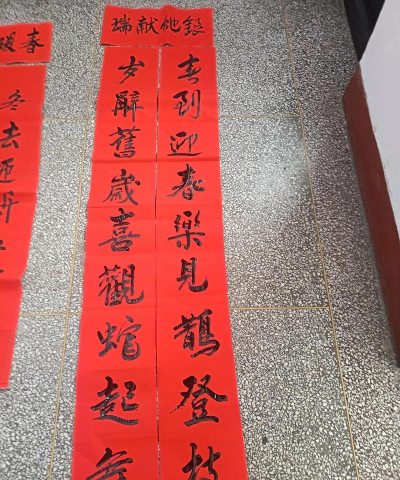 銀虵献瑞
春到迎春樂見鵲登枝
岁辭舊歲喜觀蛇起舞
春暖
冬去